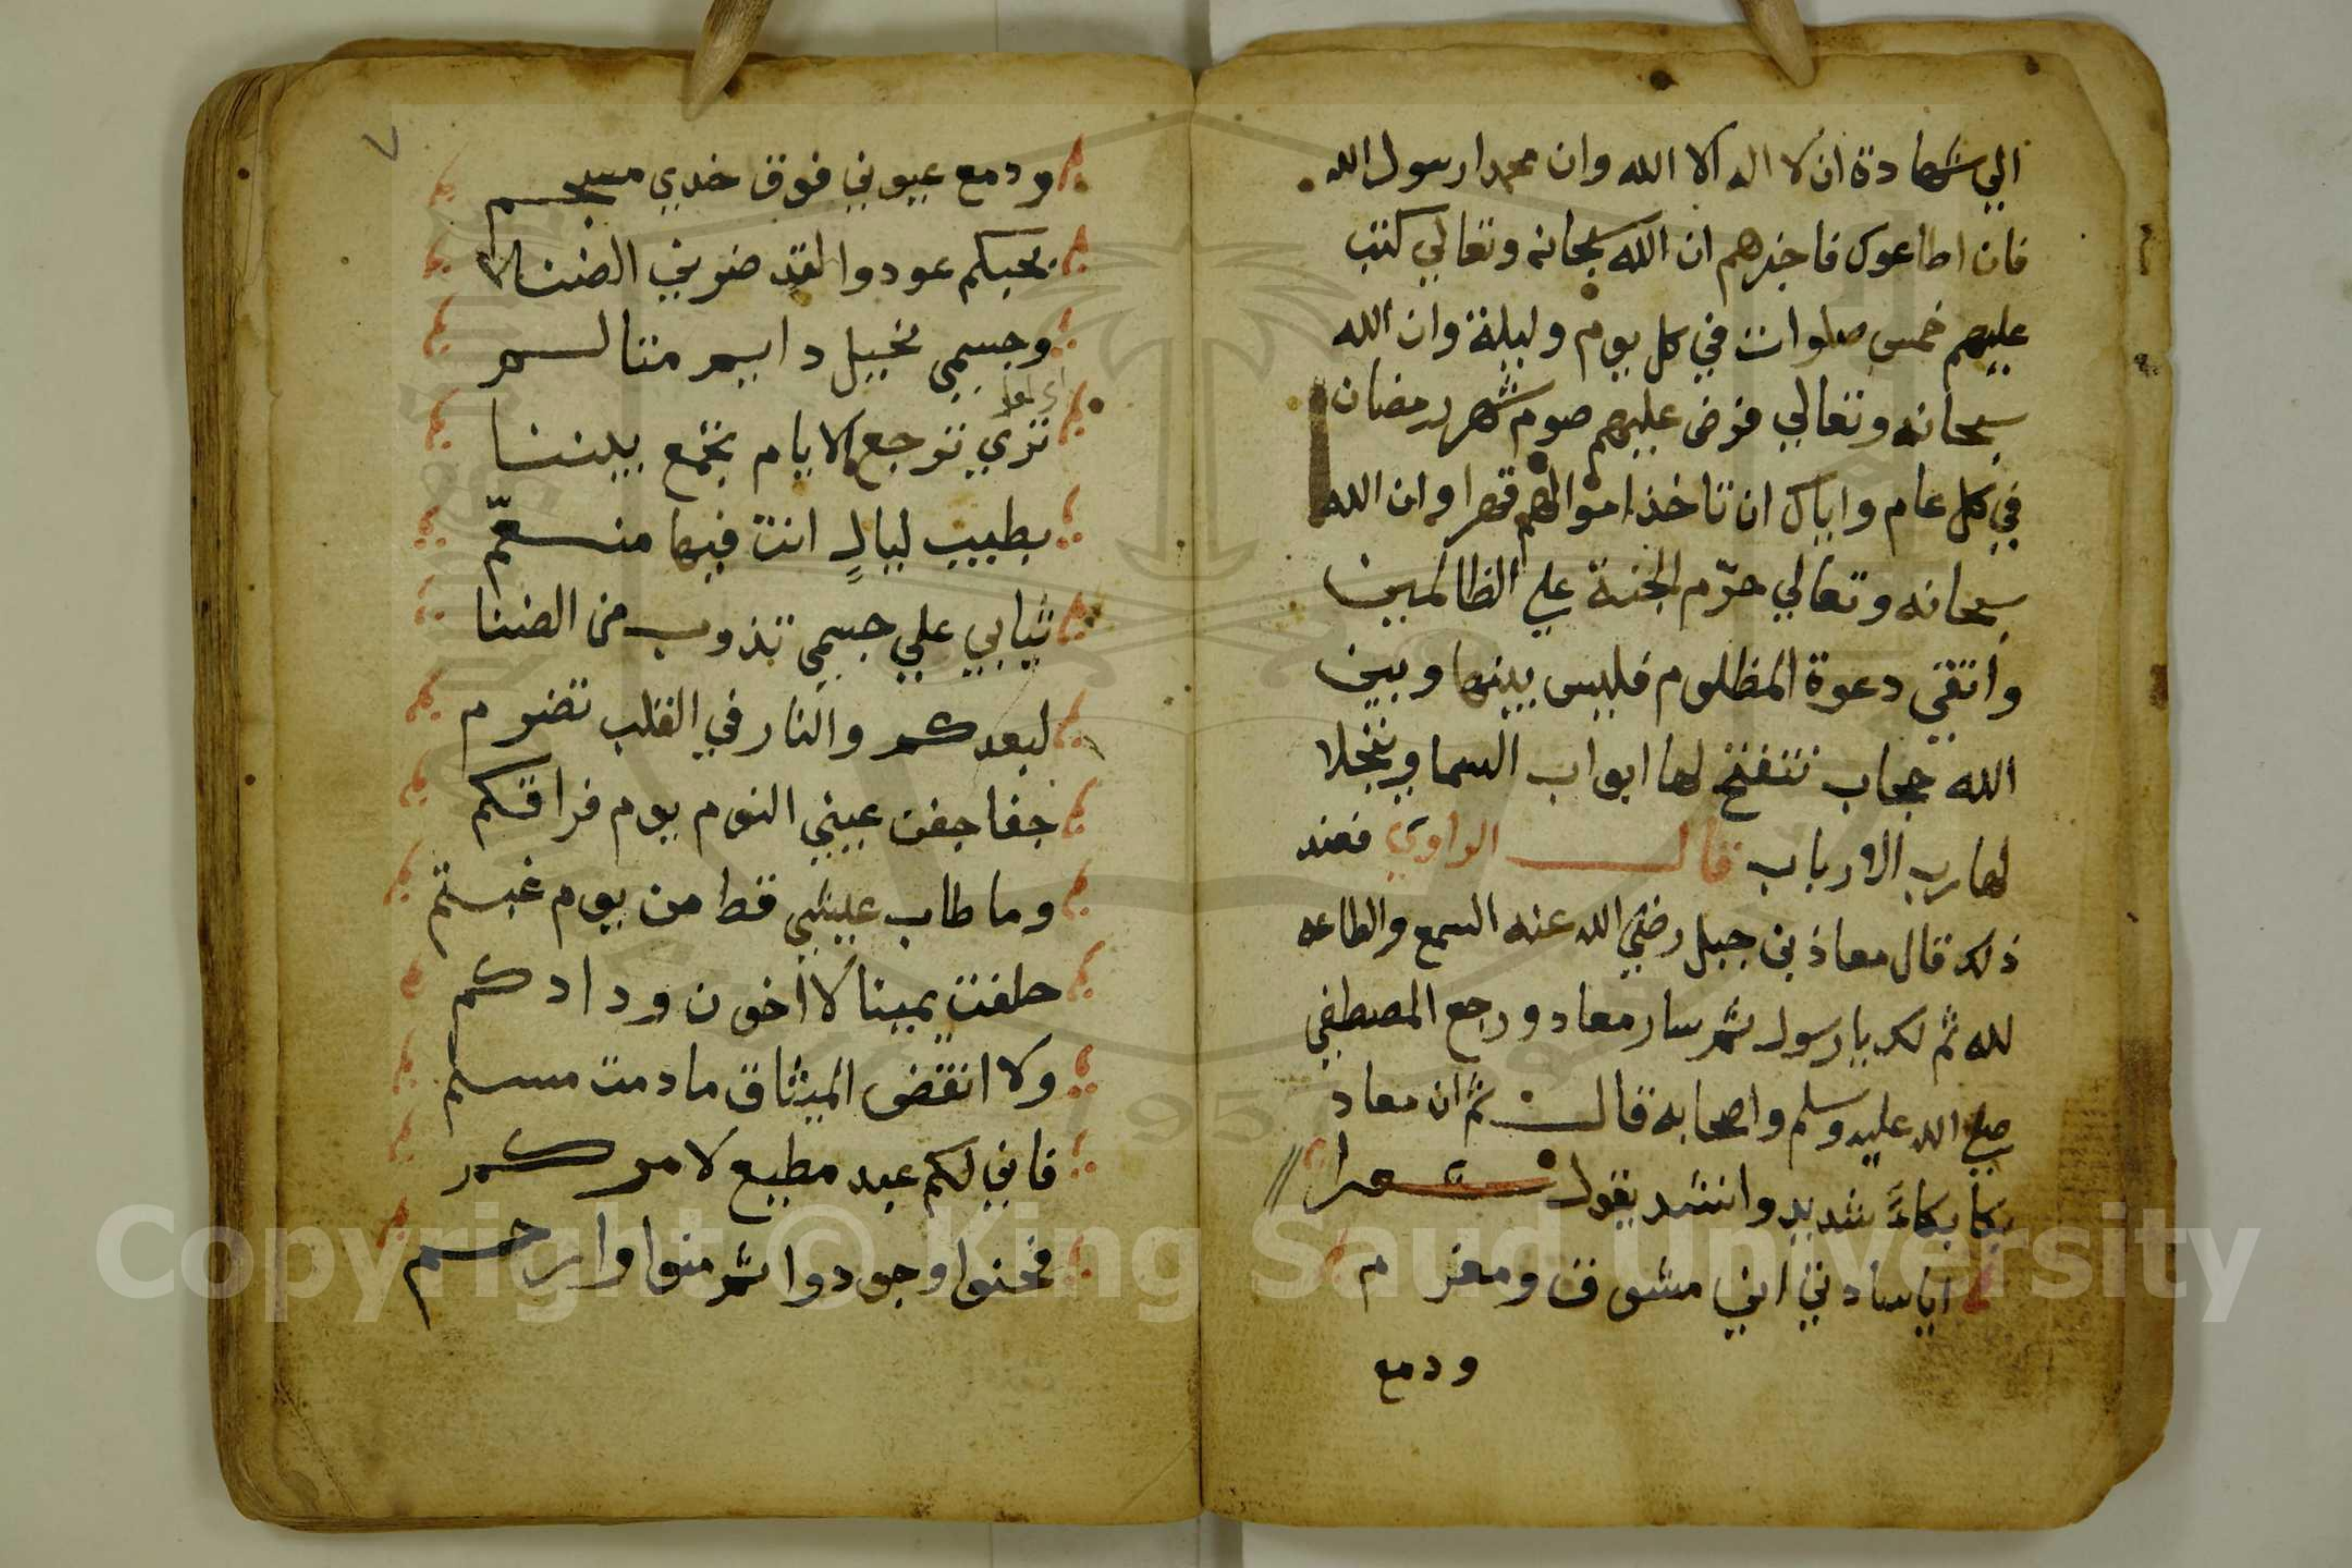 الي شهادة ان لا اله الا الله وان محمدا رسول الله
فان اطاعوك فاخبرهم ان الله سبحانه وتعالي كتب
عليهم خمس صلوات في كل يوم وليلة وان الله
سبحانه وتعالي فرض عليهم صوم شهر رمضان
في كل عام واياك ان تاخذ اموالهم قهرا وان الله
سبحانه وتعالي حرّم الجنة علي الظالمين
واتقي دعوة المظلوم فليس بينها وبين
الله حجاب تتفتح لها ابواب السما ويتجلا
لها رب الارباب قال الراوي فعند
ذلك قال معاذ بن جبل رضي الله عنه السمع والطاعه
لله ثم لك يا رسول ثم سار معاد ورجع المصطفي
صلي الله عليه وسلم واصحابه قال ثم ان معاد
بكا بكاءً شديد وانشد يقول شعرا
ايا سادتي اني مشوق ومغرم
ودمع
٧
ودمع عيوني فوق خدي مسجم
بحبكم عودوا لقد ضرني الضنا
وجسمي نحيل دايم متالم
تري ترجع الايام تجمع بيننا
بطيب ليالٍ انت فيها منعّم
ثيابي علي جسمي تذوب من الضنا
لبعدكم والنار في القلب تضرم
جفا جفن عيني النوم يوم فراقكم
وما طاب عيشي قط من يوم غبتم
حلفت يمينا لا اخون ودادكم
ولا انقض الميثاق ما دمت مسلم
فاني لكم عبد مطيع لامركم
فحنوا وجودوا ثم منوا وارحم
Copyright © King Saud University
1957